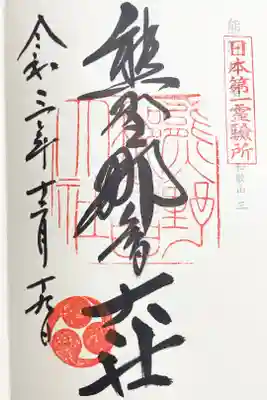 日本第一霊験所
熊野那智大社
令和三年十二月十九日